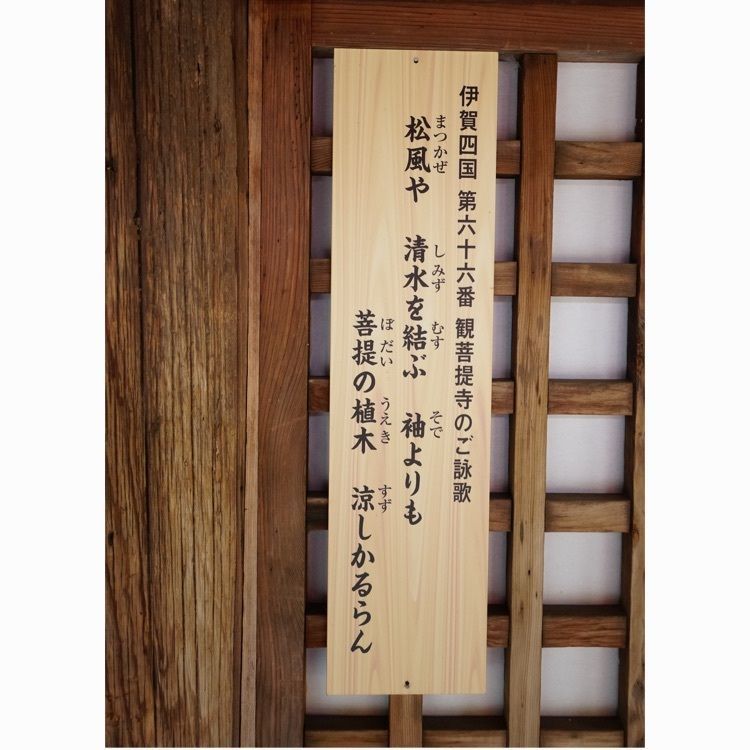 伊賀四国 第六十六番 観菩提寺のご詠歌
松風や 清水を結ぶ 袖よりも
まつかぜ しみず むす そで
菩提の植木 涼しかるらん
ぼだい うえき すず